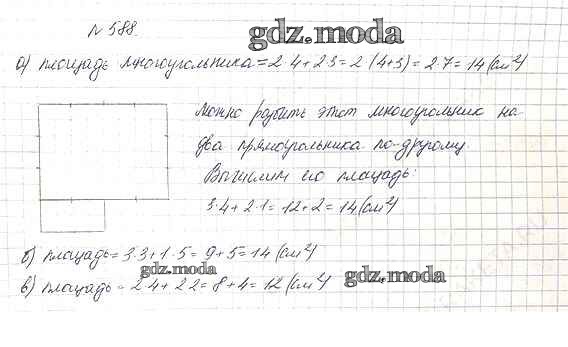 № 588.
gdz.moda
а) площадь многоугольника = 2·4 + 2·3 = 2·(4+3) = 2·7 = 14 (см²)
Можно разбить этот многоугольник на
два прямоугольника по-другому.
Вычислим его площадь:
3·4 + 2·1 = 12 + 2 = 14 (см²)
б) площадь = 3·3 + 1·5 = 9 + 5 = 14 (см²)
gdz.moda
в) площадь = 2·4 + 2·2 = 8 + 4 = 12 (см²)
gdz.moda